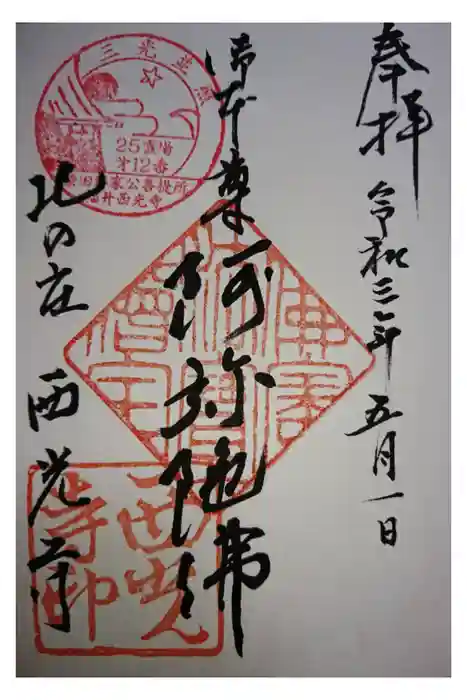 奉拝
令和三年五月一日
御本尊
阿弥陀佛
北の庄 西光寺
三光並照
25霊場
第12番
田勝家公菩提所
福井西光寺
佛法僧寶
西光寺印